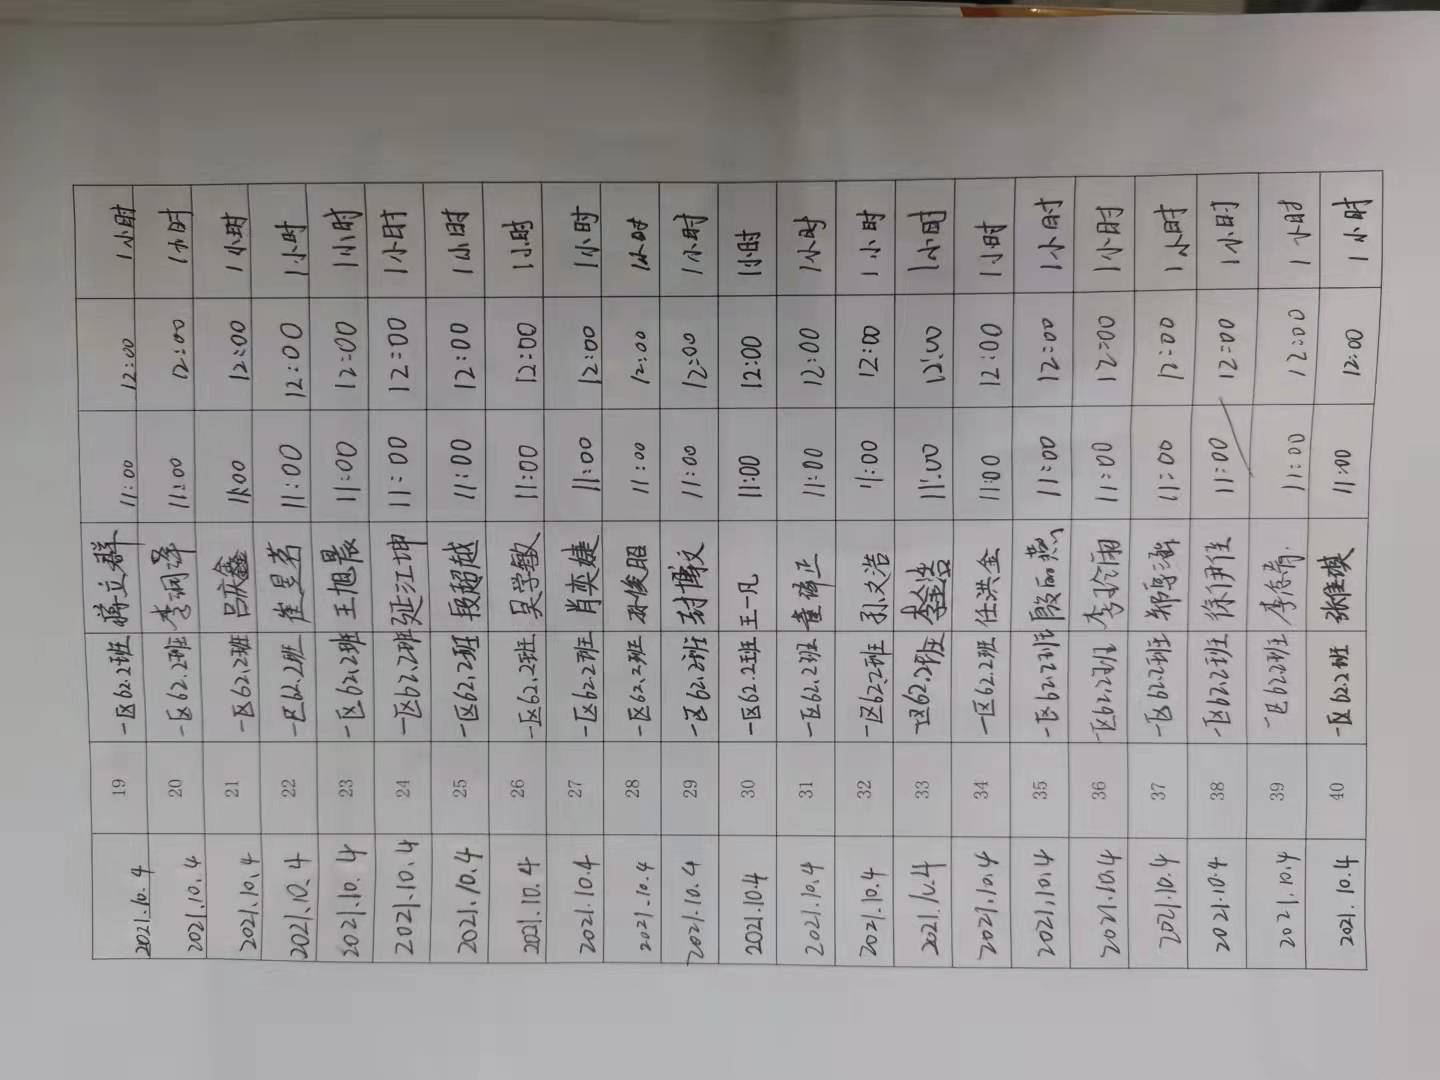 2021.10.4 19 一区62.2班 蒋立群 11:00 12:00 1小时
2021.10.4 20 一区62.2班 11:00 12:00 1小时
2021.10.4 21 一区62.2班 吕庆鑫 11:00 12:00 1小时
2021.10.4 22 一区62.2班 崔昱茗 11:00 12:00 1小时
2021.10.4 23 一区62.2班 王旭晨 11:00 12:00 1小时
2021.10.4 24 一区62.2班 延江坤 11:00 12:00 1小时
2021.10.4 25 一区62.2班 段超越 11:00 12:00 1小时
2021.10.4 26 一区62.2班 吴学敏 11:00 12:00 1小时
2021.10.4 27 一区62.2班 肖奕婕 11:00 12:00 1小时
2021.10.4 28 一区62.2班 孙俊昭 11:00 12:00 1小时
2021.10.4 29 一区62.2班 封博文 11:00 12:00 1小时
2021.10.4 30 一区62.2班 王一凡 11:00 12:00 1小时
2021.10.4 31 一区62.2班 11:00 12:00 1小时
2021.10.4 32 一区62.2班 孙文浩 11:00 12:00 1小时
2021.10.4 33 一区62.2班 11:00 12:00 1小时
2021.10.4 34 一区62.2班 任洪金 11:00 12:00 1小时
2021.10.4 35 一区62.2班 殷丽燕 11:00 12:00 1小时
2021.10.4 36 一区62.2班 11:00 12:00 1小时
2021.10.4 37 一区62.2班 11:00 12:00 1小时
2021.10.4 38 一区62.2班 徐伊佳 11:00 12:00 1小时
2021.10.4 39 一区62.2班 11:00 12:00 1小时
2021.10.4 40 一区62.2班 张佳琪 11:00 12:00 1小时